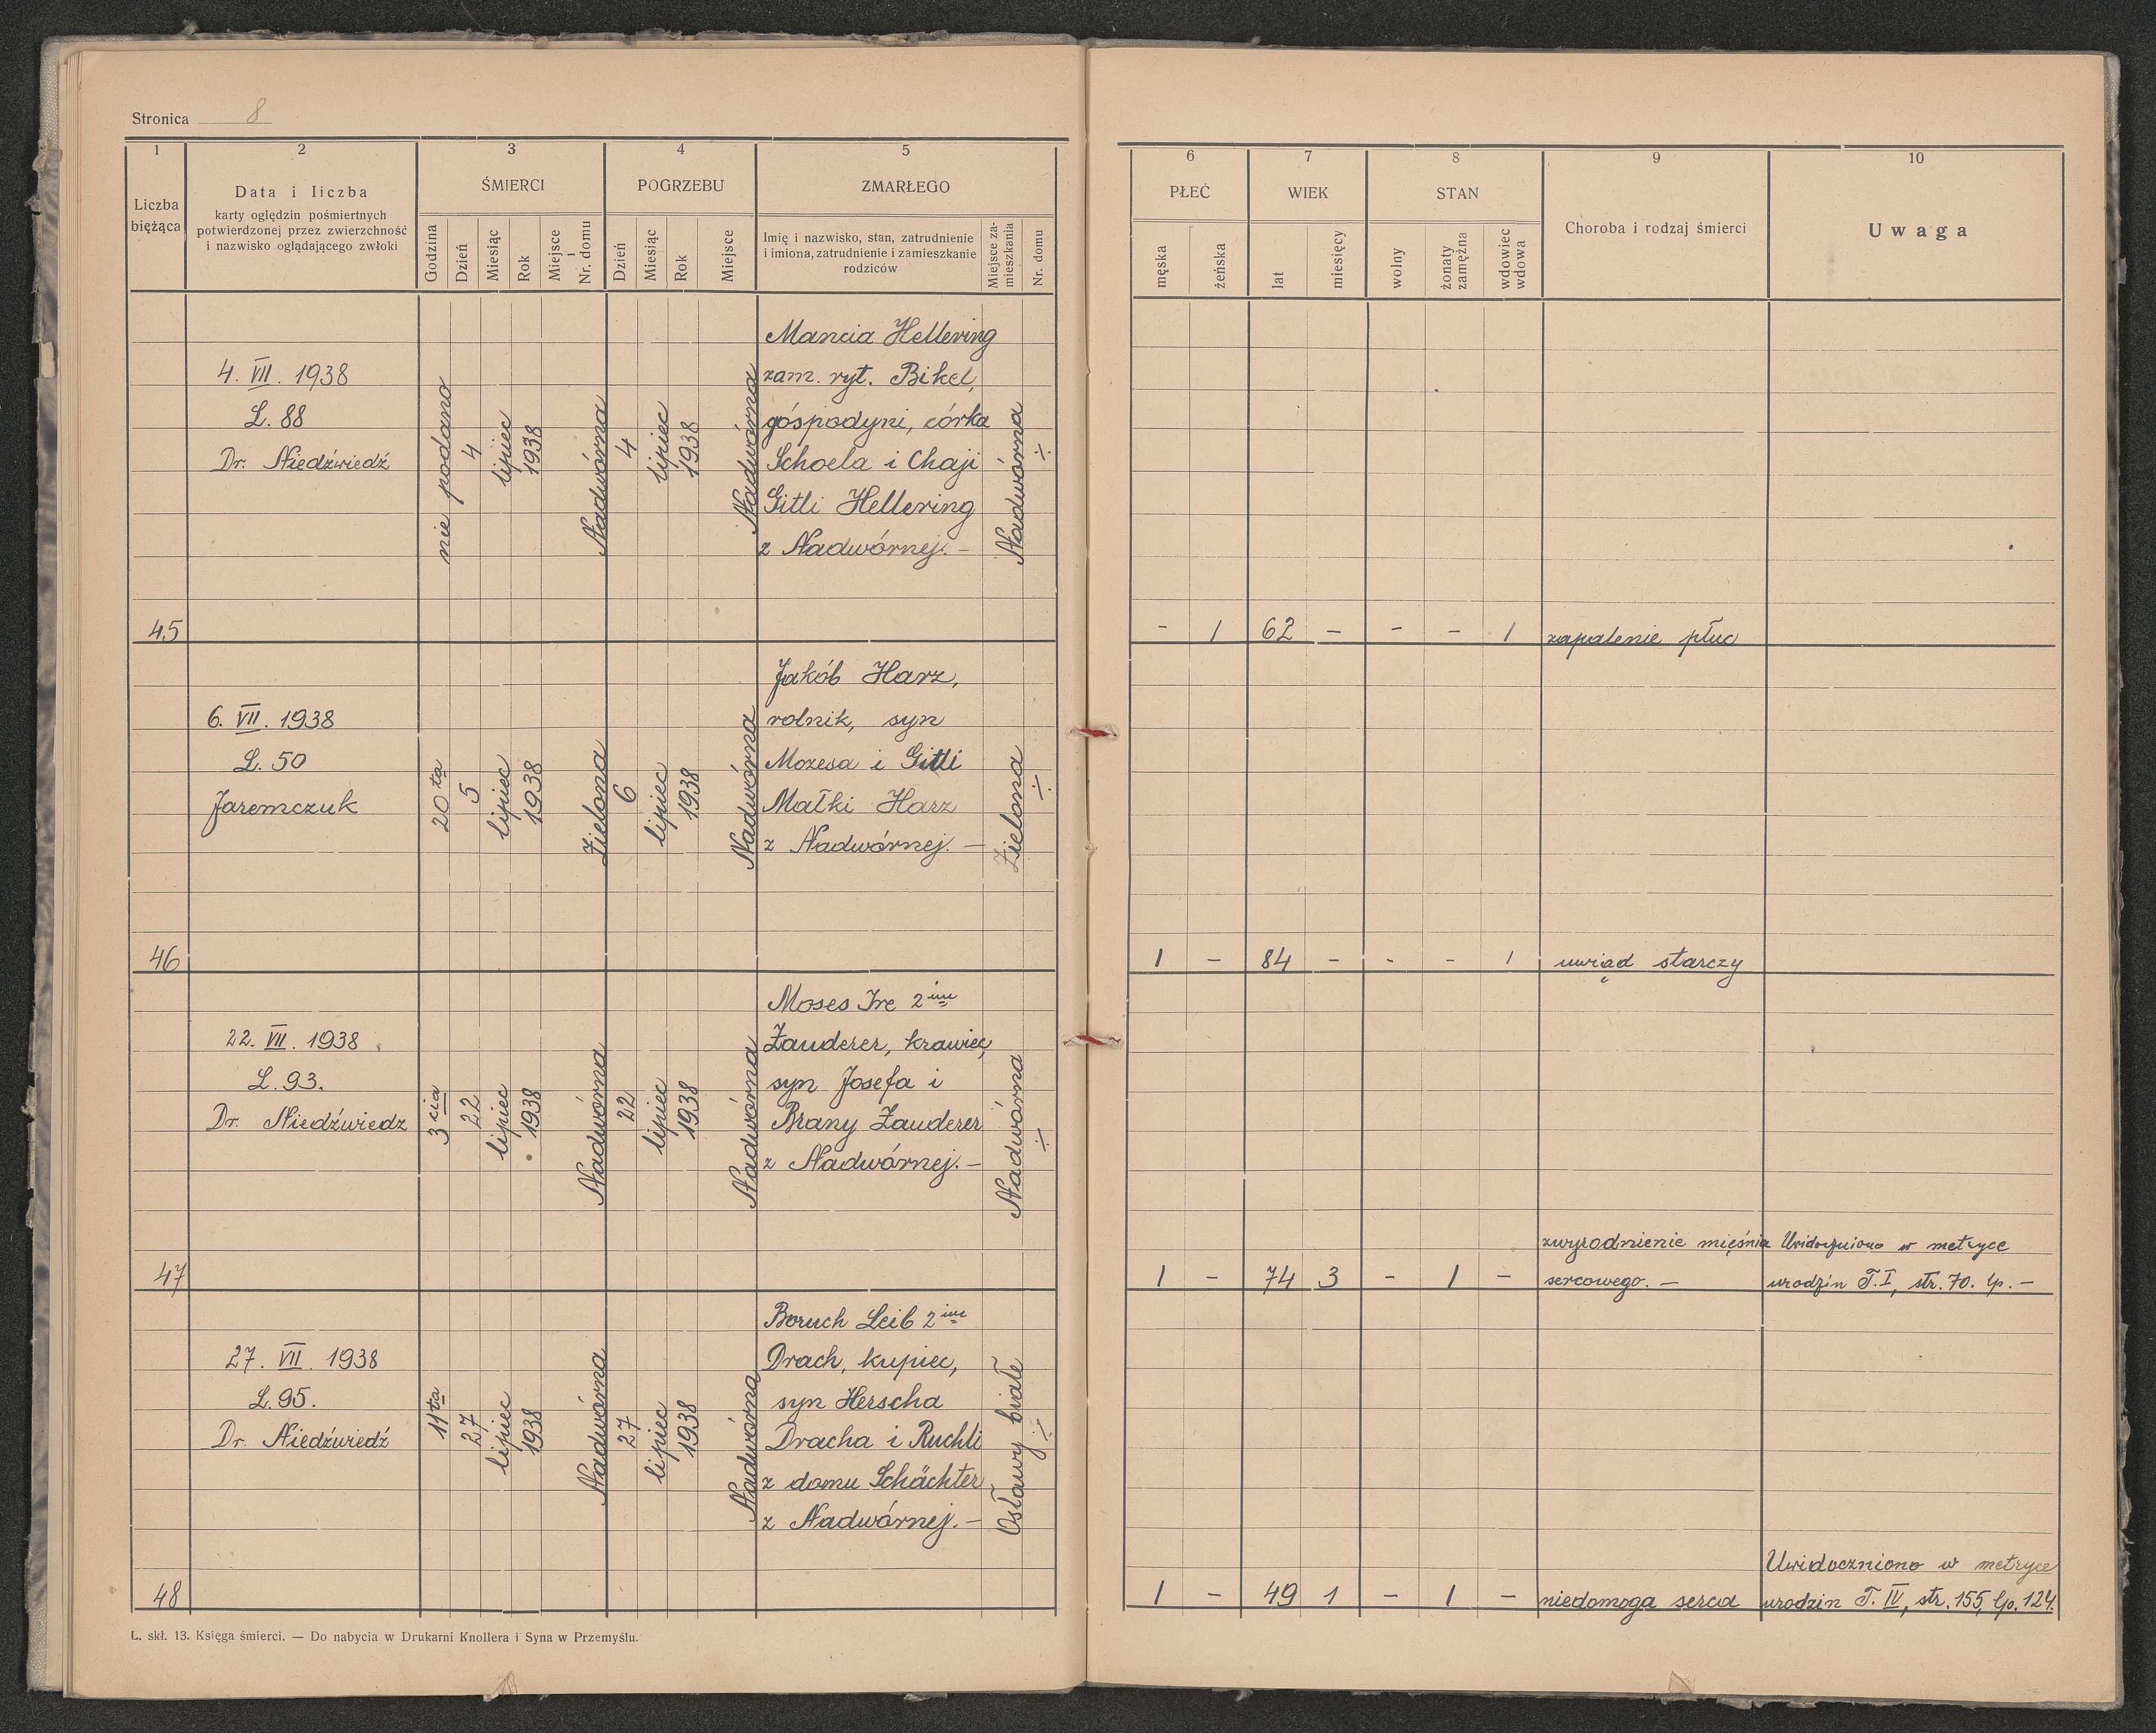 Stronica 8
1 2 3 4 5 6 7 8 9 10
Liczba bieżąca
Data i liczba
karty oględzin pośmiertnych
potwierdzonej przez zwierzchność
i nazwisko oglądającego zwłoki
ŚMIERCI
Godzina
Dzień
Miesiąc
Rok
Miejsce i Nr. domu
POGRZEBU
Dzień
Miesiąc
Rok
Miejsce
ZMARŁEGO
Imię i nazwisko, stan, zatrudnienie
i imiona, zatrudnienie i zamieszkanie
rodziców
Miejsce zamieszkania
Nr. domu
PŁEĆ
męska
żeńska
WIEK
lat
miesięcy
STAN
wolny
żonaty zamężna
wdowiec wdowa
Choroba i rodzaj śmierci
Uwaga
45
4. VII. 1938
L. 88
Dr. Niedźwiedź
nie podano
4
lipiec
1938
Nadwórna
4
lipiec
1938
Nadwórna
Mancia Hellering
zam. ryt. Bikel,
góspodyni, córka
Schoela i Chaji
Gitli Hellering
z Nadwórnej. –
Nadwórna
÷
– 1 62 – – – 1 zapalenie płuc
46
6. VII. 1938
L. 50
Jaremczuk
20 ta
5
lipiec
1938
Zielona
6
lipiec
1938
Nadwórna
Jakób Harz,
rolnik, syn
Mozesa i Gitli
Małki Harz
z Nadwórnej. –
Zielona
÷
1 – 84 – – – 1 uwiąd starczy
47
22. VII. 1938
L. 93.
Dr. Niedźwiedz
3 cia
22
lipiec
1938
Nadwórna
22
lipiec
1938
Nadwórna
Moses Ire 2 im
Zauderer, krawiec,
syn Josefa i
Brany Zauderer
z Nadwórnej. –
Nadwórna
÷
1 – 74 3 – 1 –
zwyrodnienie mięśnia
sercowego. –
Uwidoczniono w metryce
urodzin T. I, str. 70. lp. –
48
27. VII. 1938
L. 95.
Dr. Niedźwiedź
11 ta
27
lipiec
1938
Nadwórna
27
lipiec
1938
Nadwórna
Boruch Leib 2 im
Drach, kupiec,
syn Herscha
Dracha i Ruchli
z domu Schächter
z Nadwórnej. –
Osławy białe
÷
1 – 49 1 – 1 – niedomoga serca
Uwidoczniono w metryce
urodzin T. IV, str. 155, lp. 124.
L. skł. 13. Księga śmierci. — Do nabycia w Drukarni Knollera i Syna w Przemyślu.